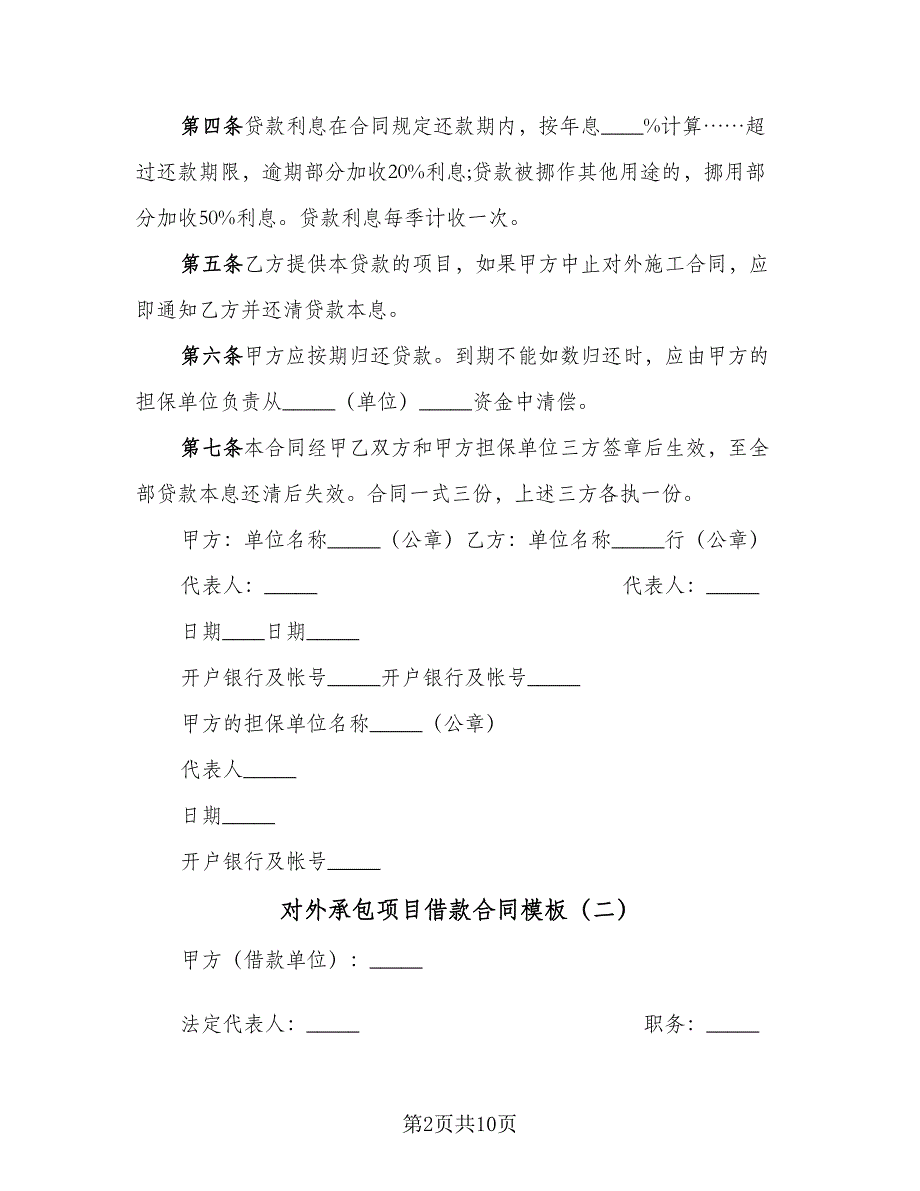 第四条贷款利息在合同规定还款期内，按年息____%计算……超
过还款期限，逾期部分加收20%利息;贷款被挪作其他用途的，挪用部
分加收50%利息。贷款利息每季计收一次。
第五条乙方提供本贷款的项目，如果甲方中止对外施工合同，应
即通知乙方并还清贷款本息。
第六条甲方应按期归还贷款。到期不能如数归还时，应由甲方的
担保单位负责从_____（单位）_____资金中清偿。
第七条本合同经甲乙双方和甲方担保单位三方签章后生效，至全
部贷款本息还清后失效。合同一式三份，上述三方各执一份。
甲方：单位名称_____（公章）乙方：单位名称_____行（公章）
代表人：_____ 代表人：_____
日期____日期_____
开户银行及帐号_____开户银行及帐号_____
甲方的担保单位名称_____（公章）
代表人_____
日期_____
开户银行及帐号_____
对外承包项目借款合同模板（二）
甲方（借款单位）：_____
法定代表人：_____ 职务：_____
第2页共10页